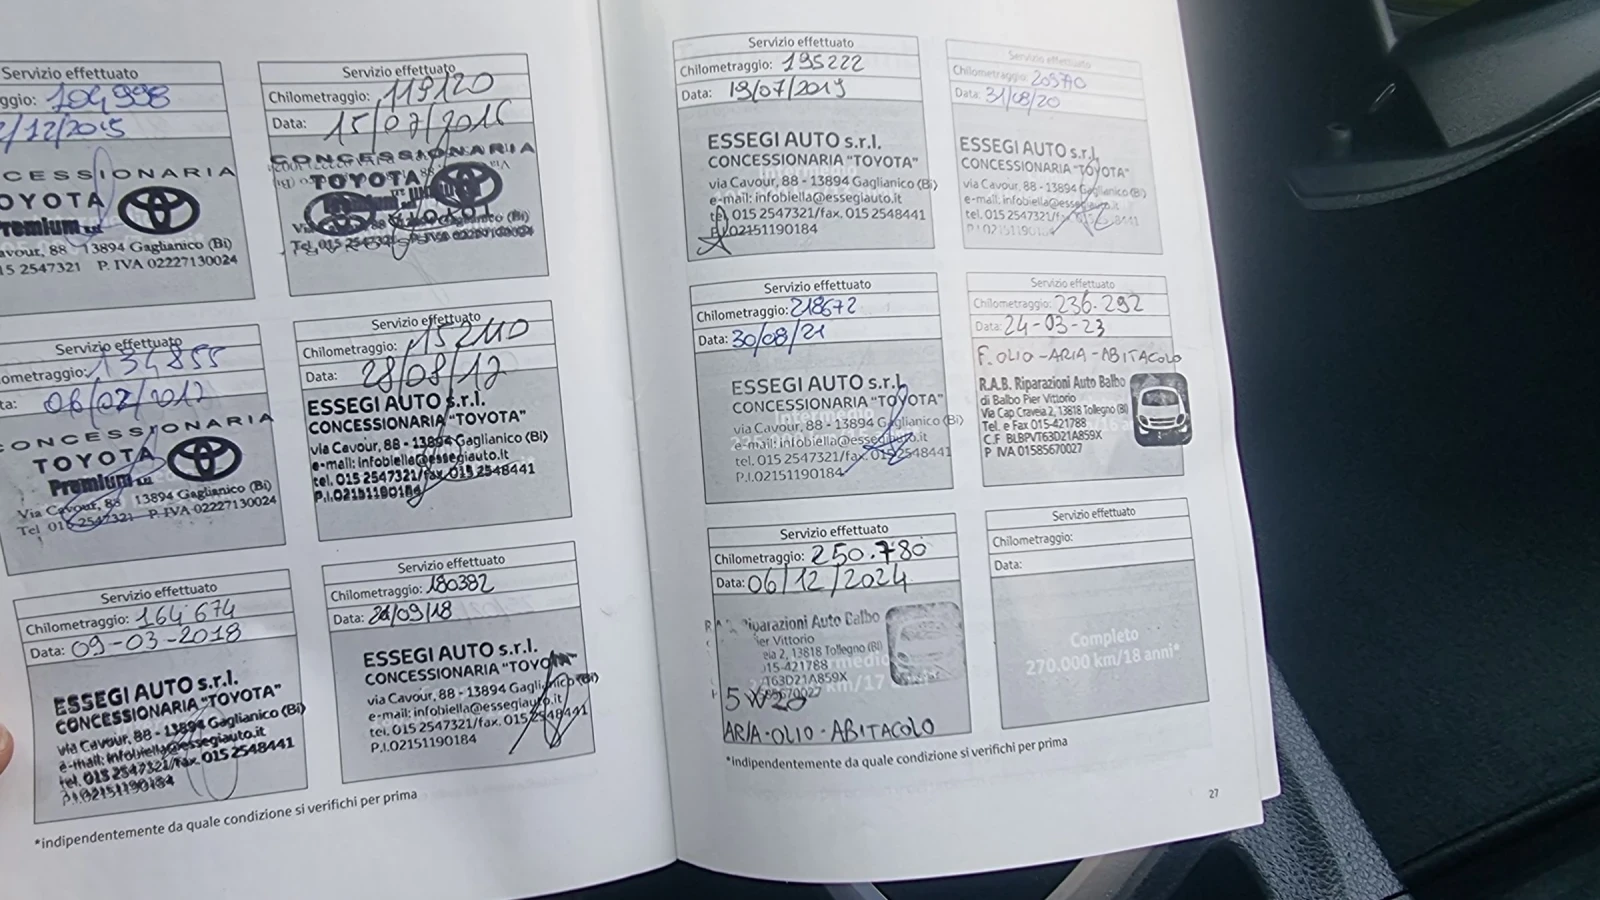 Servizio effettuato
ggio: 104998
2/12/2015
CESSIONARIA
OYOTA
Premium s.r.l.
avour, 88 13894 Gaglianico (Bi)
15 2547321 P. IVA 02227130024
Servizio effettuato
Chilometraggio: 119120
Data: 15/07/2016
CONCESSIONARIA
TOYOTA
Servizio effettuato
ometraggio: 134855
ta: 06/02/2017
ONCESSIONARIA
TOYOTA
Premium s.r.l.
Via Cavour, 88 13894 Gaglianico (Bi)
Tel 015 2547321 P. IVA 02227130024
Servizio effettuato
Chilometraggio: 152110
Data: 28/08/17
ESSEGI AUTO s.r.l.
CONCESSIONARIA "TOYOTA"
via Cavour, 88 - 13894 Gaglianico (Bi)
e-mail: infobiella@essegiauto.it
tel. 015 2547321/fax. 015 2548441
P.I.02151190184
Servizio effettuato
Chilometraggio: 164674
Data: 09-03-2018
ESSEGI AUTO s.r.l.
CONCESSIONARIA "TOYOTA"
via Cavour, 88 - 13894 Gaglianico (Bi)
e-mail: infobiella@essegiauto.it
tel. 015 2547321/fax. 015 2548441
P.I.02151190184
Servizio effettuato
Chilometraggio: 180382
Data: /09/18
ESSEGI AUTO s.r.l.
CONCESSIONARIA "TOYOTA"
via Cavour, 88 - 13894 Gaglianico (Bi)
e-mail: infobiella@essegiauto.it
tel. 015 2547321/fax. 015 2548441
P.I.02151190184
*indipendentemente da quale condizione si verifichi per prima
Servizio effettuato
Chilometraggio: 195222
Data: 19/07/2019
ESSEGI AUTO s.r.l.
CONCESSIONARIA "TOYOTA"
via Cavour, 88 - 13894 Gaglianico (Bi)
e-mail: infobiella@essegiauto.it
tel. 015 2547321/fax. 015 2548441
P.I.02151190184
Servizio effettuato
Chilometraggio: 205770
Data: 31/08/20
ESSEGI AUTO s.r.l.
CONCESSIONARIA "TOYOTA"
via Cavour, 88 - 13894 Gaglianico (Bi)
e-mail: infobiella@essegiauto.it
tel. 015 2547321/fax. 015 2548441
P.I.02151190184
Servizio effettuato
Chilometraggio: 218672
Data: 30/08/21
ESSEGI AUTO s.r.l.
CONCESSIONARIA "TOYOTA"
via Cavour, 88 - 13894 Gaglianico (Bi)
e-mail: infobiella@essegiauto.it
tel. 015 2547321/fax. 015 2548441
P.I.02151190184
Servizio effettuato
Chilometraggio: 236.292
Data: 24-03-23
F. OLIO - ARIA - ABITACOLO
R.A.B. Riparazioni Auto Balbo
di Balbo Pier Vittorio
Via Cap Craveia 2, 13818 Tollegno (BI)
Tel. e Fax 015-421788
C.F BLBPVT63D21A859X
P IVA 01585670027
Servizio effettuato
Chilometraggio: 250.780
Data: 06/12/2024
Riparazioni Auto Balbo
ier Vittorio
eia 2, 13818 Tollegno (BI)
15-421788
T63D21A859X
85670027
km/17
5W20
ARIA-OLIO-ABITACOLO
Servizio effettuato
Chilometraggio:
Data:
Completo
270.000 km/18 anni*
*indipendentemente da quale condizione si verifichi per prima
27